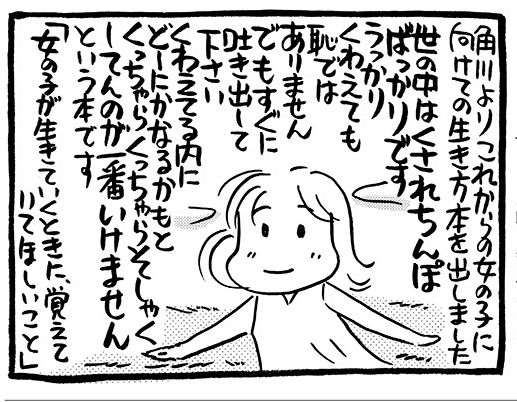 角川よりこれからの女の子に
向けての生き方本を出しました
世の中はくされちんぽ
ばっかりです
うっかり
くわえても
恥では
ありません
でもすぐに
吐き出して
下さい
くわえてる内に
どーにかなるかもと
くっちゃらくっちゃらそしゃく
してんのが一番いけません
という本です
「女の子が生きていくときに、覚えて
いてほしいこと」